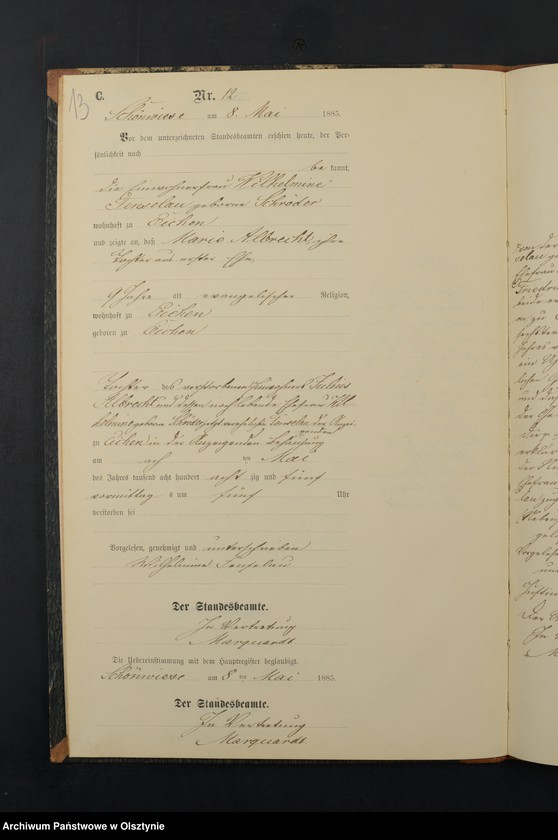 13
C. Nr. 12
Schönwiese am 8. Mai 1885.
Vor dem unterzeichneten Standesbeamten erschien heute, der Per-
sönlichkeit nach
be kannt,
die Einwohnerfrau Wilhelmine
Tenselau geborne Schröder
wohnhaft zu Eichen
und zeigte an, daß Marie Albrecht, ihre
Tochter aus erster Ehe,
9 Jahre alt evangelischer Religion,
wohnhaft zu Eichen
geboren zu Eichen
Tochter des verstorbenen Einwohners Julius
Albrecht und dessen nachlebende Ehefrau Wil-
helmine geborne Schröder jetzt verehelichte Tenselau
zu Eichen in der Anzeigenden Behausung
am acht ten Mai
des Jahres tausend acht hundert acht zig und fünf
vormittag s um fünf Uhr
verstorben sei
Vorgelesen, genehmigt und unterschrieben
Wilhelmine Tenselau
Der Standesbeamte.
In Vertretung
Marquardt
Die Uebereinstimmung mit dem Hauptregister beglaubigt.
Schönwiese am 8 ten Mai 1885.
Der Standesbeamte.
In Vertretung
Marquardt
Archiwum Państwowe w Olsztynie